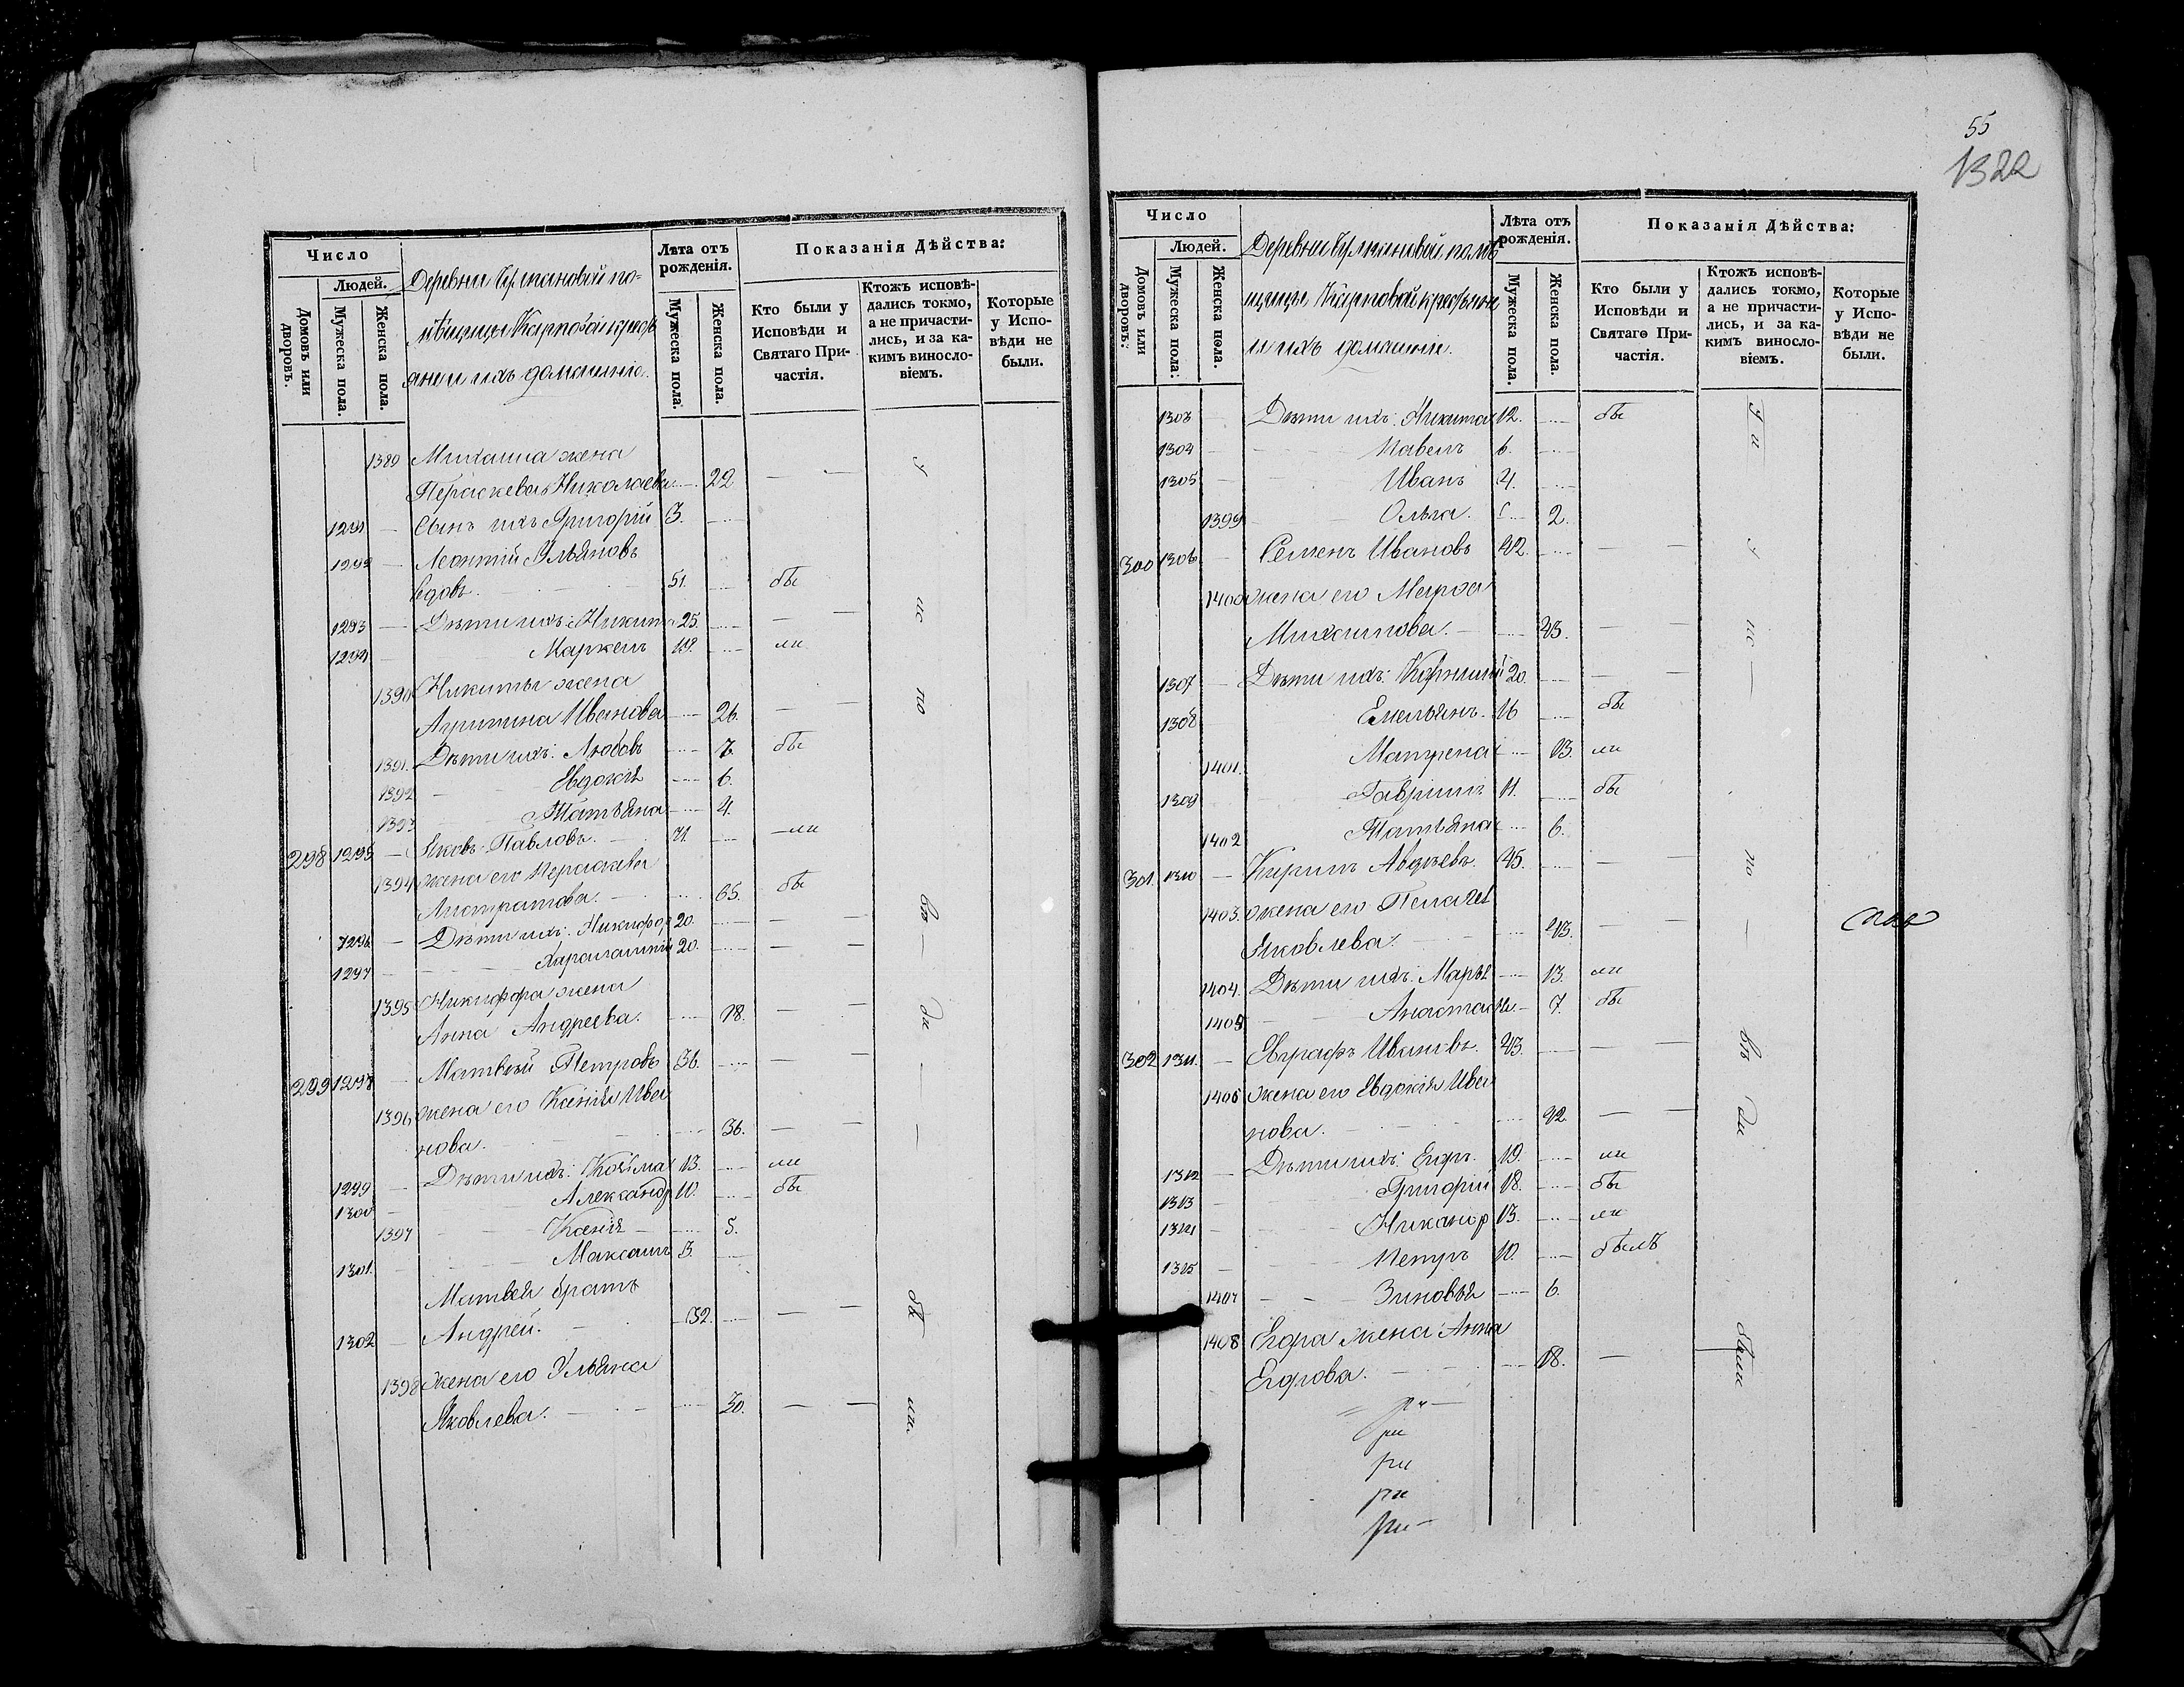 Число
Людей.
Домовъ или дворовъ.
Мужеска пола.
Женска пола.
Деревни по-
мѣщицы Карповой кресть
яне и ихъ домашніе.
Лѣта отъ рожденія.
Мужеска пола.
Женска пола.
Показанія Дѣйства:
Кто были у Исповѣди и Святаго При-частія.
Ктожъ исповѣ-дались токмо, а не причасти-лись, и за ка-кимъ винособ-віемъ.
Которые у Испо-вѣди не были.
1389 Михаила жена
Пераскева Николаева 22
1291 Сынъ ихъ Григорій 3.
1292 Леонтій Ульяновъ
вдовъ. 51. бы
1293 Дѣти ихъ: Никита 25.
1294 Маркелъ 18. ли
1390 Никиты жена
Агрипина Иванова 26.
1391. Дѣти ихъ: Любовь 7. бы
1392 Евдокія 6.
1393 Татьяна 4.
298 1295 Яковъ Павловъ. 71. ли
1394 жена его Пераскева
65. бы
1296 Дѣти ихъ: Никифор 20.
1297 Харалампій 20.
1395 Никифора жена
Анна Андреева. 18.
299 1298 Матвей Петровъ 36.
1396 жена его Ксенія Ива
нова. 36.
1299 Дѣти ихъ: Козьма 13. ли
1300 Александр 10. бы
1397 Ксенія 5.
1301. Максимъ 3.
Матвея братъ
1302 Андрей. 32.
1398 жена его Ульяна
Яковлева. 30.
у
ис
по
вѣ
ди
бы
ли
55
1322
Число
Людей.
Домовъ или дворовъ.
Мужеска пола.
Женска пола.
Деревни помѣ
щицы Карповой крестьяне
и ихъ домашніи.
Лѣта отъ рожденія.
Мужеска пола.
Женска пола.
Показанія Дѣйства:
Кто были у Исповѣди и Святаго При-частія.
Ктожъ исповѣ-дались токмо, а не причасти-лись, и за ка-кимъ виносло-віемъ.
Которые у Испо-вѣди не были.
1303 Дѣти ихъ: Никита 12. бы
1304 Павелъ 6.
1305 Иванъ 4.
1399 Ольга. 2.
300 1306 Семенъ Ивановъ 42.
1400 жена его Марфа
Михаилова. 43.
1307 Дѣти ихъ: Корнилій 20.
1308 Емельянъ. 16 бы
1401. Матрена 13. ли
1309 Гаврилъ 11. бы
1402 Татьяна 6.
301. 1310 Кирилъ Авдѣевъ. 45.
1403. жена его Пелагея
Яковлева. 43.
1404. Дѣти ихъ: Марья 13. ли
1405 Анастасія 7. бы
302 1311. Евграфъ Ивановъ. 43.
1406 жена его Евдокія Ива
нова. 42.
1312 Дѣти ихъ: Егоръ. 19. ли
1313 Григорій 18. бы
1314 Никанор 13. ли
1315 Петръ 10. былъ
1407 Зиновья 6.
1408 Егора жена Анна
Егорова. 18.
у
ис
по
вѣ
ди
были